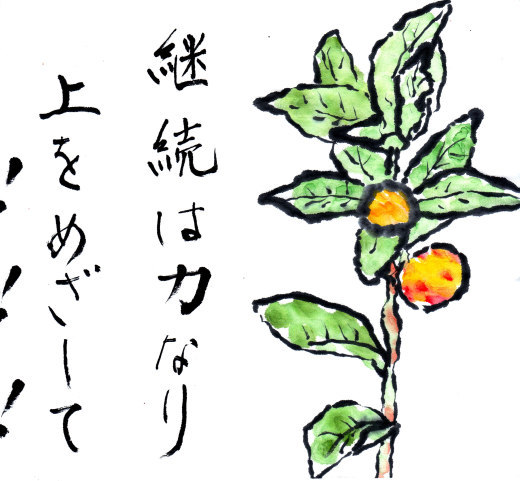 継続は力なり
上をめざして
!!!